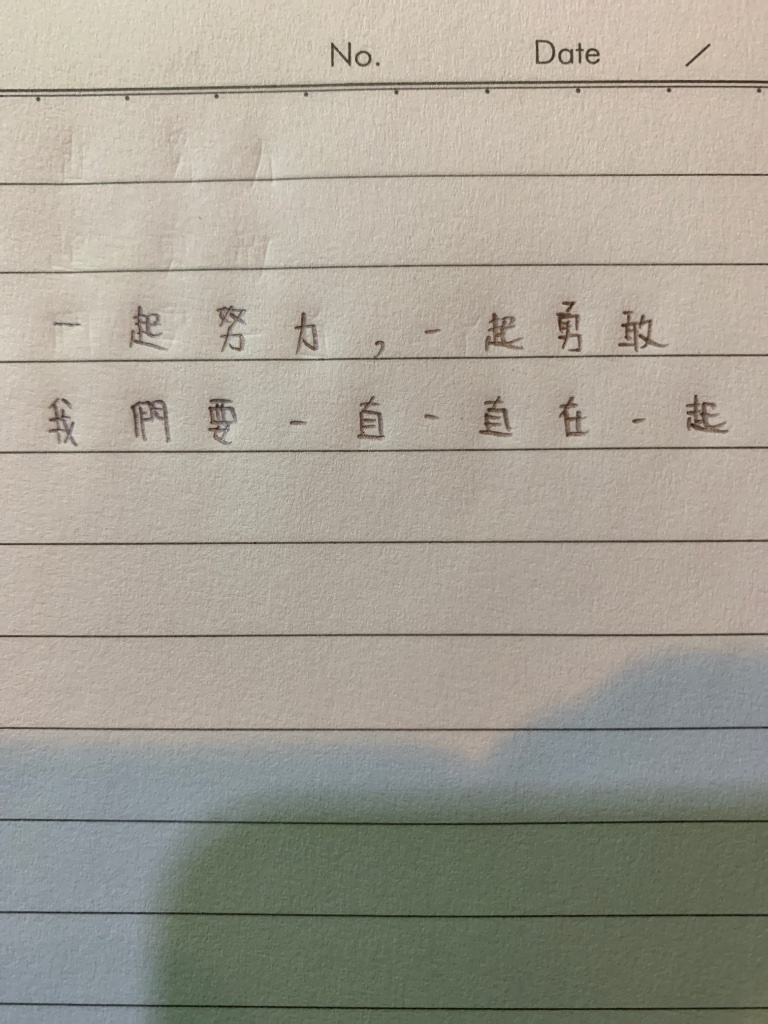 No. Date /
一起努力，一起勇敢
我們要一直一直在一起